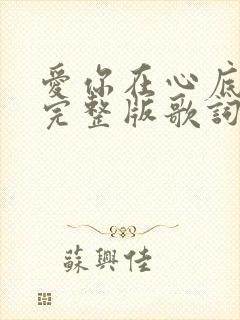 愛你在心底
完整版歌詞
蘇興佳